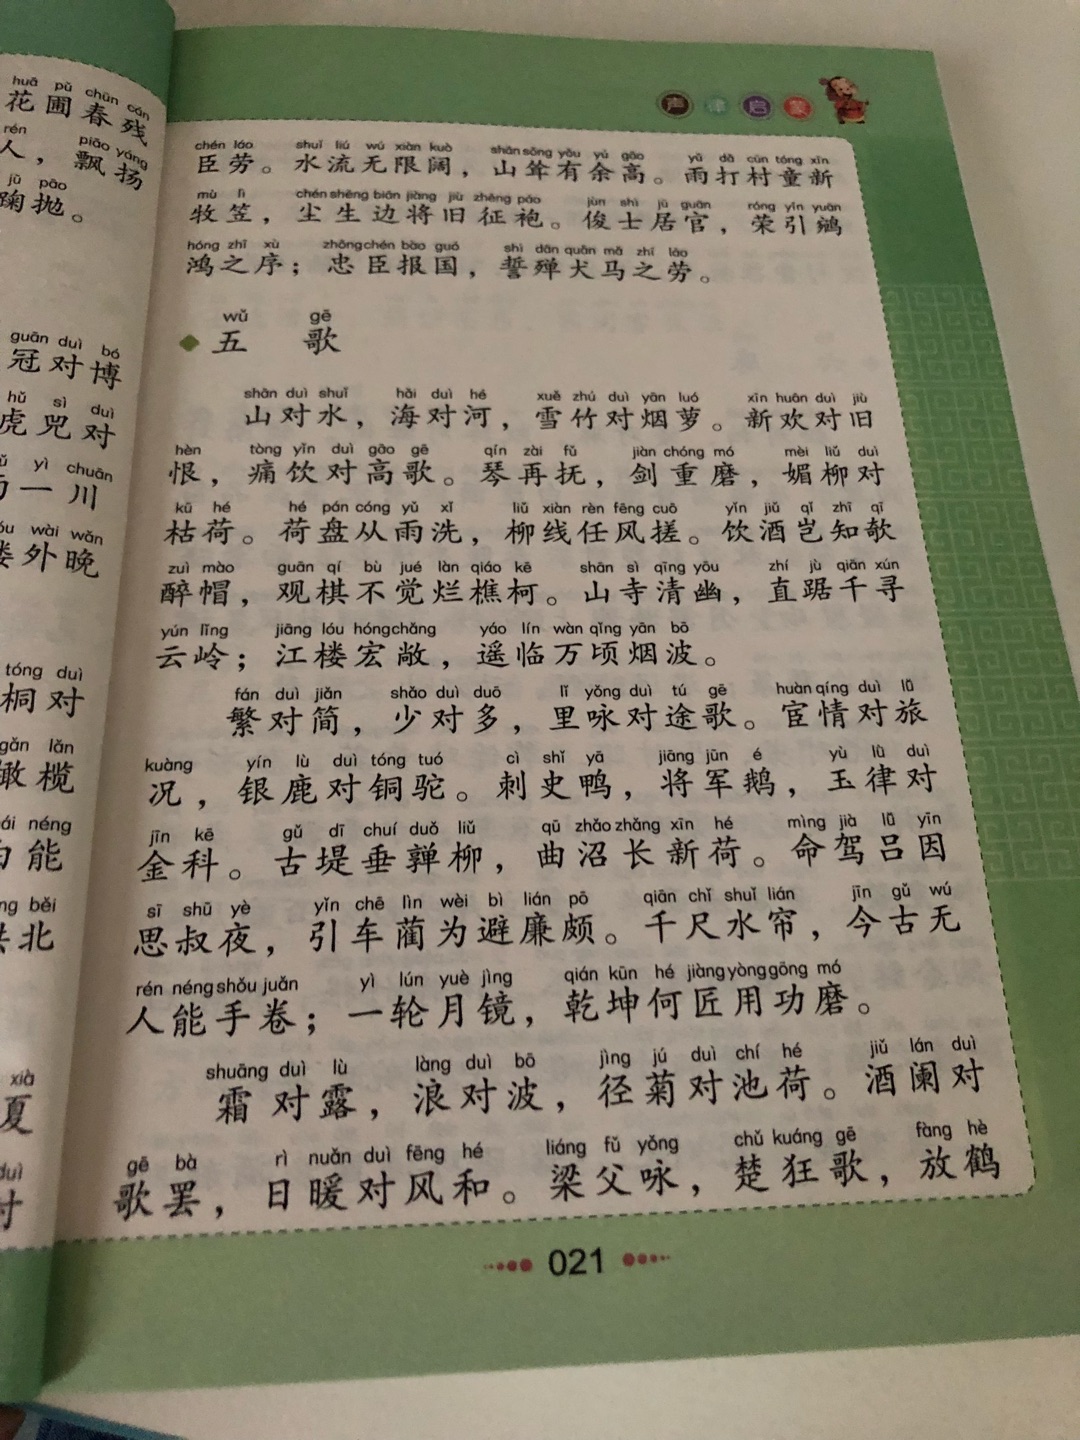 huā pǔ chūn cán
花圃春残
rén piāo yáng
人，飘扬
jū pāo
鞠抛。
guān duì bó
冠对博
hǔ sì duì
虎兕对
yì chuān
一川
wài wǎn
楼外晚
tóng duì
桐对
gǎn lǎn
橄榄
néng
能
běi
北
xià
夏
duì
对
声律启蒙
chén láo shuǐ liú wú xiàn kuò shān sǒng yǒu yú gāo yǔ dǎ cūn tóng xīn
臣劳。水流无限阔，山耸有余高。雨打村童新
mù lì chén shēng biān jiàng jiù zhēng páo jùn shì jū guān róng yǐn yuān
牧笠，尘生边将旧征袍。俊士居官，荣引鹓
hóng zhī xù zhōng chén bào guó shì dān quǎn mǎ zhī láo
鸿之序；忠臣报国，誓殚犬马之劳。
wǔ gē
五 歌
shān duì shuǐ hǎi duì hé xuě zhú duì yān luó xīn huān duì jiù
山对水，海对河，雪竹对烟萝。新欢对旧
hèn tòng yǐn duì gāo gē qín zài fǔ jiàn chóng mó mèi liǔ duì
恨，痛饮对高歌。琴再抚，剑重磨，媚柳对
kū hé hé pán cóng yǔ xǐ liǔ xiàn rèn fēng cuō yǐn jiǔ qǐ zhī qī
枯荷。荷盘从雨洗，柳线任风搓。饮酒岂知欹
zuì mào guān qí bù jué làn qiáo kē shān sì qīng yōu zhí jù qiān xún
醉帽，观棋不觉烂樵柯。山寺清幽，直踞千寻
yún lǐng jiāng lóu hóng chǎng yáo lín wàn qǐng yān bō
云岭；江楼宏敞，遥临万顷烟波。
fán duì jiǎn shǎo duì duō lǐ yǒng duì tú gē huàn qíng duì lǚ
繁对简，少对多，里咏对途歌。宦情对旅
kuàng yín lù duì tóng tuó cì shǐ yā jiāng jūn é yù lǜ duì
况，银鹿对铜驼。刺史鸭，将军鹅，玉律对
jīn kē gǔ dī chuí duǒ liǔ qū zhǎo zhǎng xīn hé mìng jià lǚ yīn
金科。古堤垂亸柳，曲沼长新荷。命驾吕因
sī shū yè yǐn chē lìn wèi bì lián pō qiān chǐ shuǐ lián jīn gǔ wú
思叔夜，引车蔺为避廉颇。千尺水帘，今古无
rén néng shǒu juǎn yì lún yuè jìng qián kūn hé jiàng yòng gōng mó
人能手卷；一轮月镜，乾坤何匠用功磨。
shuāng duì lù làng duì bō jìng jú duì chí hé jiǔ lán duì
霜对露，浪对波，径菊对池荷。酒阑对
gē bà rì nuǎn duì fēng hé liáng fǔ yǒng chǔ kuáng gē fàng hè
歌罢，日暖对风和。梁父咏，楚狂歌，放鹤
021